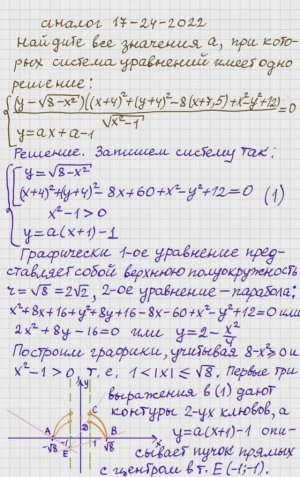 аналог 17-24-2022
Найдите все значения а, при кото-
рых система уравнений имеет одно
решение:
(y-√8-x²)((x+4)²+(y+4)²-8(x+7,5)+x²-y²+12) =0
√x²-1
y=ax+a-1
Решение. Запишем систему так:
y=√8-x²
(x+4)²+(y+4)²-8x+60+x²-y²+12=0 (1)
x²-1>0
y=a(x+1)-1
Графически 1-ое уравнение пред-
ставляет собой верхнюю полуокружность
r=√8=2√2, 2-ое уравнение-парабола:
x²+8x+16+y²+8y+16-8x-60+x²-y²+12=0 или
2x²+8y-16=0 или y=2-x²/4
Построим графики, учитывая 8-x²≥0 и
x²-1>0, т.е. 1<|x|≤√8. Первые три
выражения в (1) дают
контуры 2-ух клювов, а
y=a(x+1)-1 опи-
сывает пучок прямых
с центром в т. E(-1;-1).
y
C
D
A B
-√8 -1 1 √8 x
E